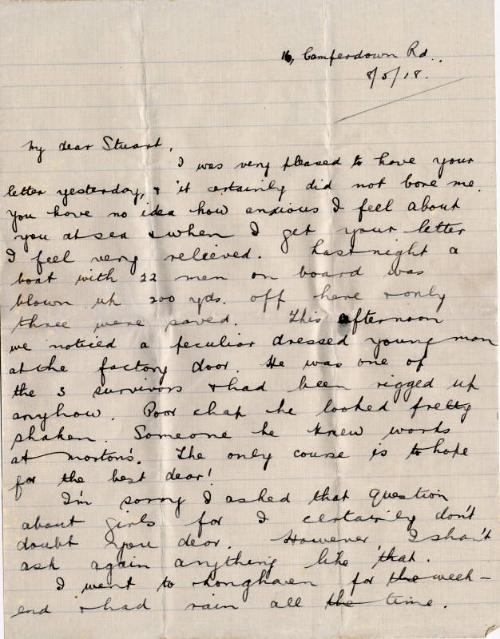 16, Camperdown Rd.
8/5/18.
My dear Stuart,
I was very pleased to have your
letter yesterday, & it certainly did not bore me.
You have no idea how anxious I feel about
you at sea & when I get your letter
I feel very relieved. Last night a
boat with 22 men on board was
blown up 200 yds. off here & only
three were saved. This afternoon
we noticed a peculiar dressed young man
at the factory door. He was one of
the 3 survivors & had been rigged up
anyhow. Poor chap he looked pretty
shaken. Someone he knew works
at Morton's. The only course is to hope
for the best dear!
I'm sorry I asked that question
about girls for I certainly don't
doubt you dear. However, I shan't
ask again anything like that.
I went to for the week-
end & had rain all the time.